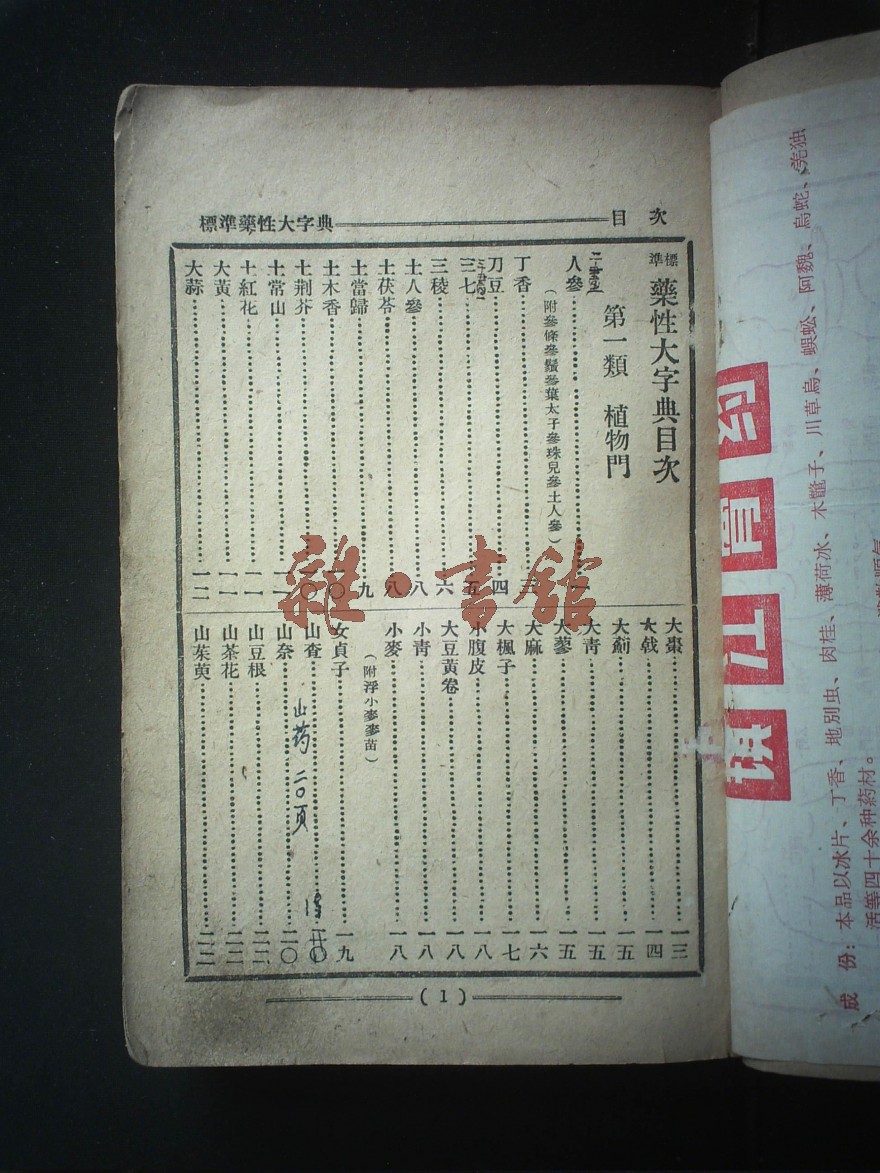 標準藥性大字典 目次
標準 藥性大字典目次
第一類 植物門
人參 一
（附參條參鬚參葉太子參珠兒參土人參）
丁香 三
刀豆 四
三七 五
三稜 六
土人參 八
土茯苓 八
土當歸 九
土木香 一〇
土荆芥 一〇
土常山 一一
土紅花 一一
大黃 一一
大蒜 一二
大棗 一三
大戟 一四
大薊 一五
大青 一五
大蓼 一五
大麻 一六
大楓子 一七
大腹皮 一八
大豆黃卷 一八
小青 一八
小麥 一八
（附浮小麥麥苗）
女貞子 一九
山查
山药 二〇页
山奈 二〇
山豆根 二二
山茶花 二二
山茱萸 二二
(1)
雜·書館
成份：本品以冰片、丁香、地别虫、肉桂、薄荷冰、木鼈子、川草烏、蜈蚣、阿魏、烏蛇、羌独
活等四十余种药材。